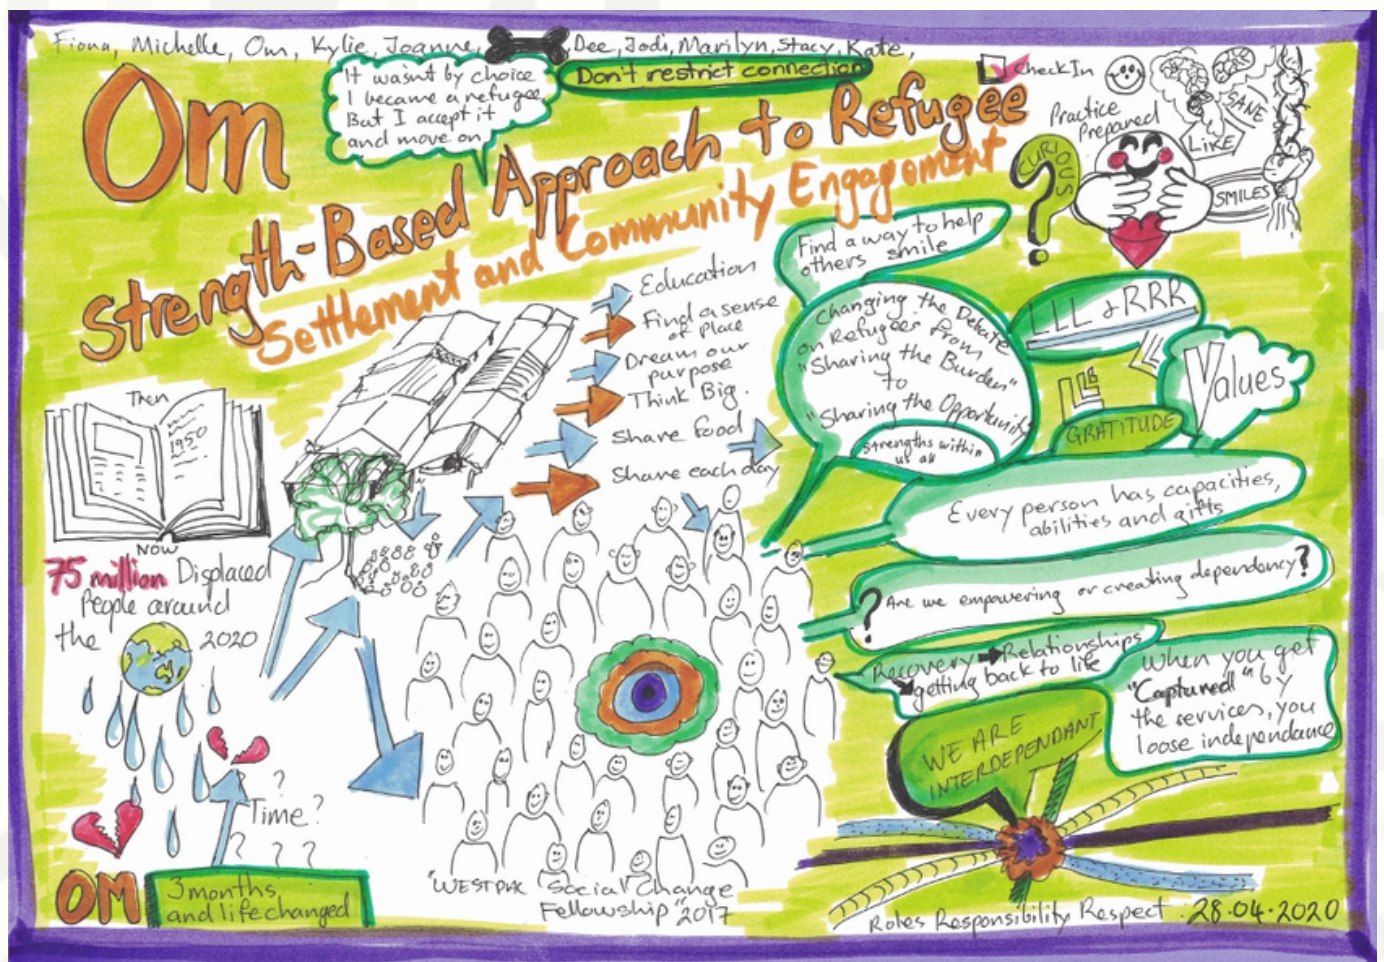 Fiona, Michelle, Om, Kylie, Joanne,
Dee, Jodi, Marilyn, Stacy, Kate,
Om
It wasnt by choice
I became a refugee
But I accept it
and move on
Don't restrict connection
Check In
Practice
Prepared
SANE
LIKE
SMILES
CURIOUS
?
Strength-Based Approach to Refugee
Settlement and Community Engagement
Education
Find a sense
of Place
Dream our
purpose
Think Big.
Share food
Share each day
Find a way to help
others smile
Changing the Debate
on Refugees from
"Sharing the Burden"
to
"Sharing the Opportunity
Strengths within
us all
LLL & RRR
Values
GRATITUDE
Every person has capacities,
abilities and gifts
? Are we empowering or creating dependency?
Recovery Relationships
getting back to life
When you get
"Captured" by
the services, you
loose independance
WE ARE
INTERDEPENDANT
Then
1950
Now
75 million Displaced
People around
the 2020
?
Time?
? ? ?
OM
3 months,
and life changed
"WESTPAC Social Change
Fellowship" 2017
Roles Responsibility Respect 28.04.2020